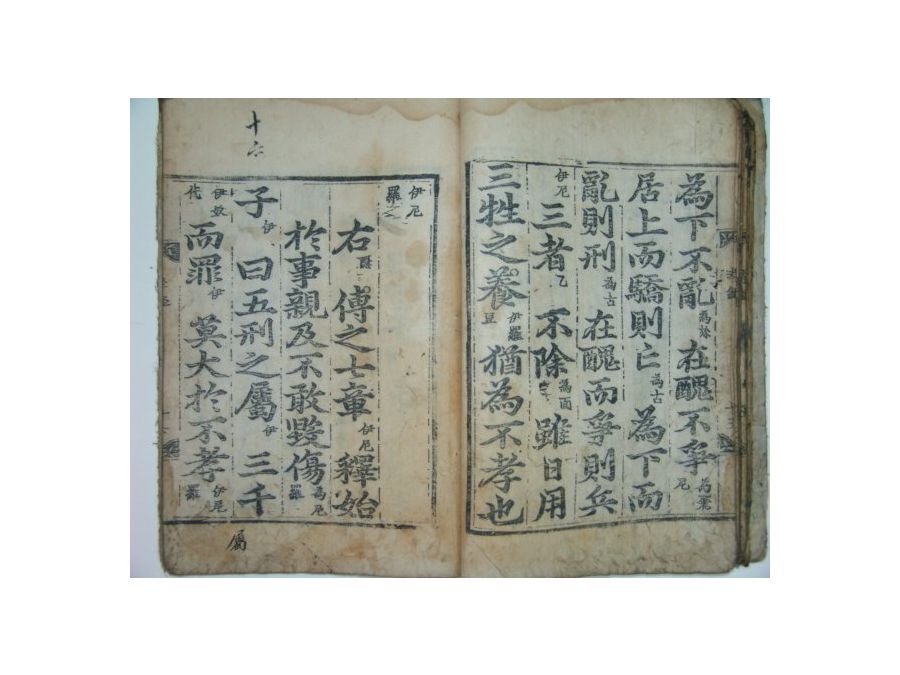 為下不亂為旀在醜不爭為尼
居上而驕則亡為古為下而
亂則刑為古在醜而爭則兵
伊尼三者乙不除為面雖日用
三牲之養豆伊羅猶為不孝也
伊尼羅
右傳之七章伊尼釋始
於事親及不敢毀傷為尼羅
子伊曰五刑之屬伊三千
伊代而罪伊莫大於不孝伊尼羅
十六
屬